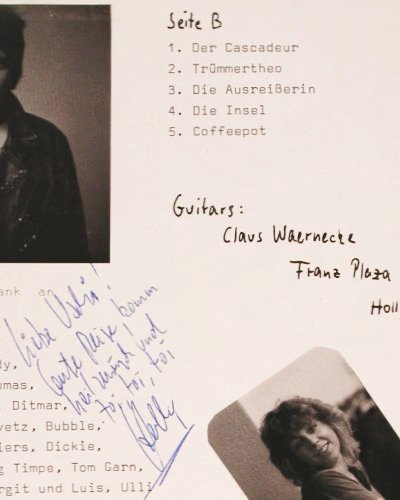 Seite B
1. Der Cascadeur
2. Trümmertheo
3. Die Ausreißerin
4. Die Insel
5. Coffeepot
Guitars:
Claus Waernecke
Franz Plaza
Holl
ank an
Liebe
Gute Reise komm
heil zurück! und
toi, toi, toi
Kelly
dy,
omas,
. Ditmar,
vetz, Bubble,
iers, Dickie,
g Timpe, Tom Garn,
rgit und Luis, Ulli